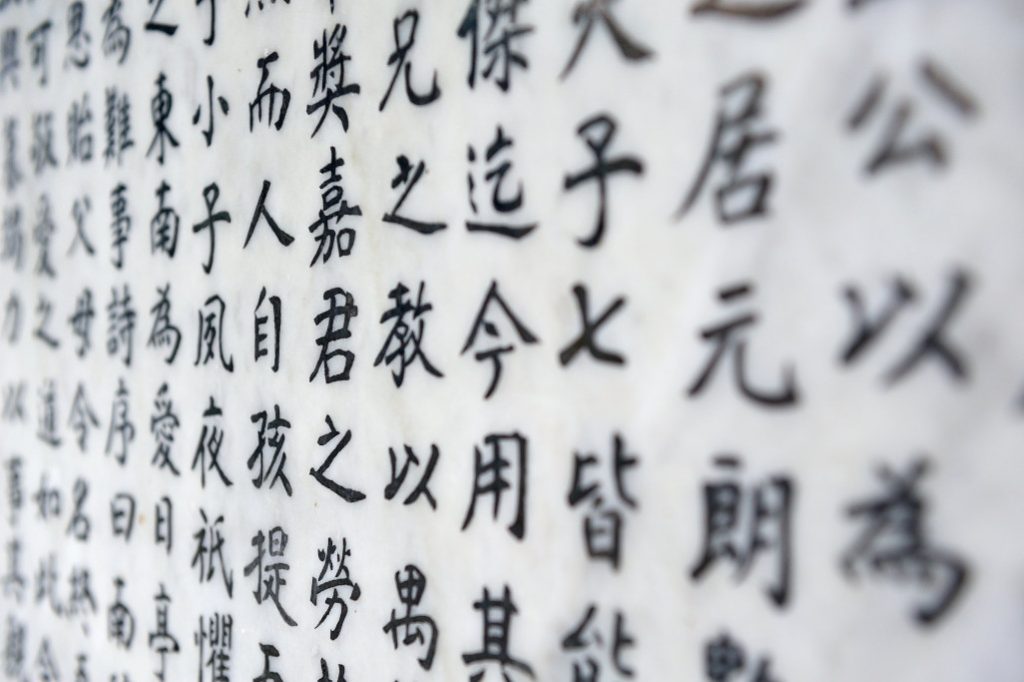 公以為
居元朗
子七皆能
傑迄今用其
兄之教以禺
獎嘉君之勞
而人自孩提
子小子夙夜祇懼
之東南為愛日亭
為難事詩序曰南
恩貽父母令名終
可敬愛之道如此
力以事其親